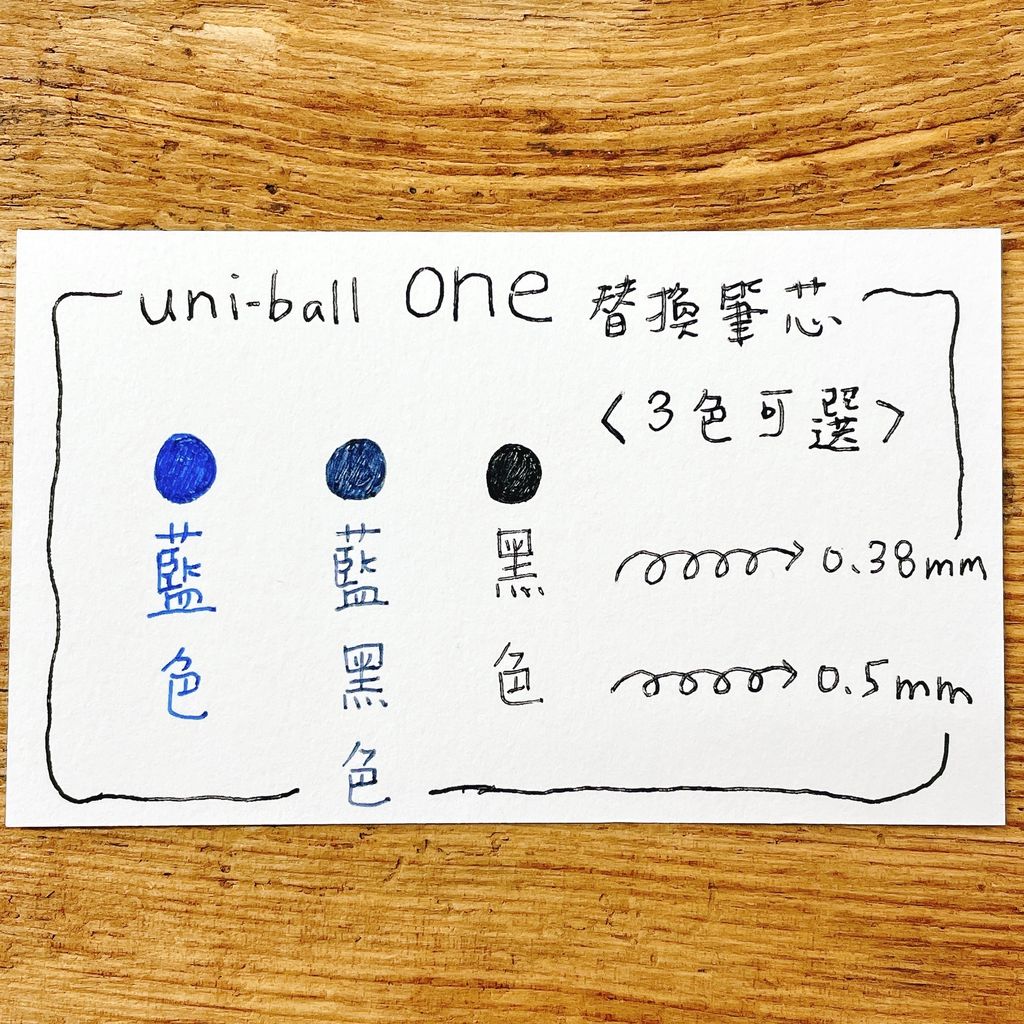 uni-ball one 替換筆芯
<3色可選>
藍色
藍黑色
黑色
0.38mm
0.5mm